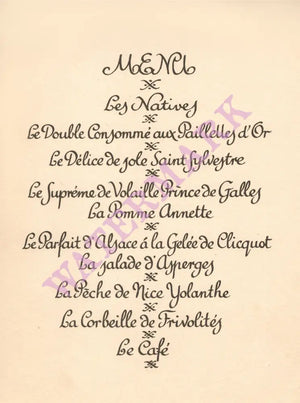 MENU
Les Natives
Le Double Consommé aux Paillettes d'Or
Le Délice de sole Saint Sylvestre
Le Suprême de Volaille Prince de Galles
La Pomme Annette
Le Parfait d'Alsace á la Gelée de Clicquot
La salade d'Asperges
La Pêche de Nice Yolanthe
La Corbeille de Frivolités
Le Café
WATERMARK